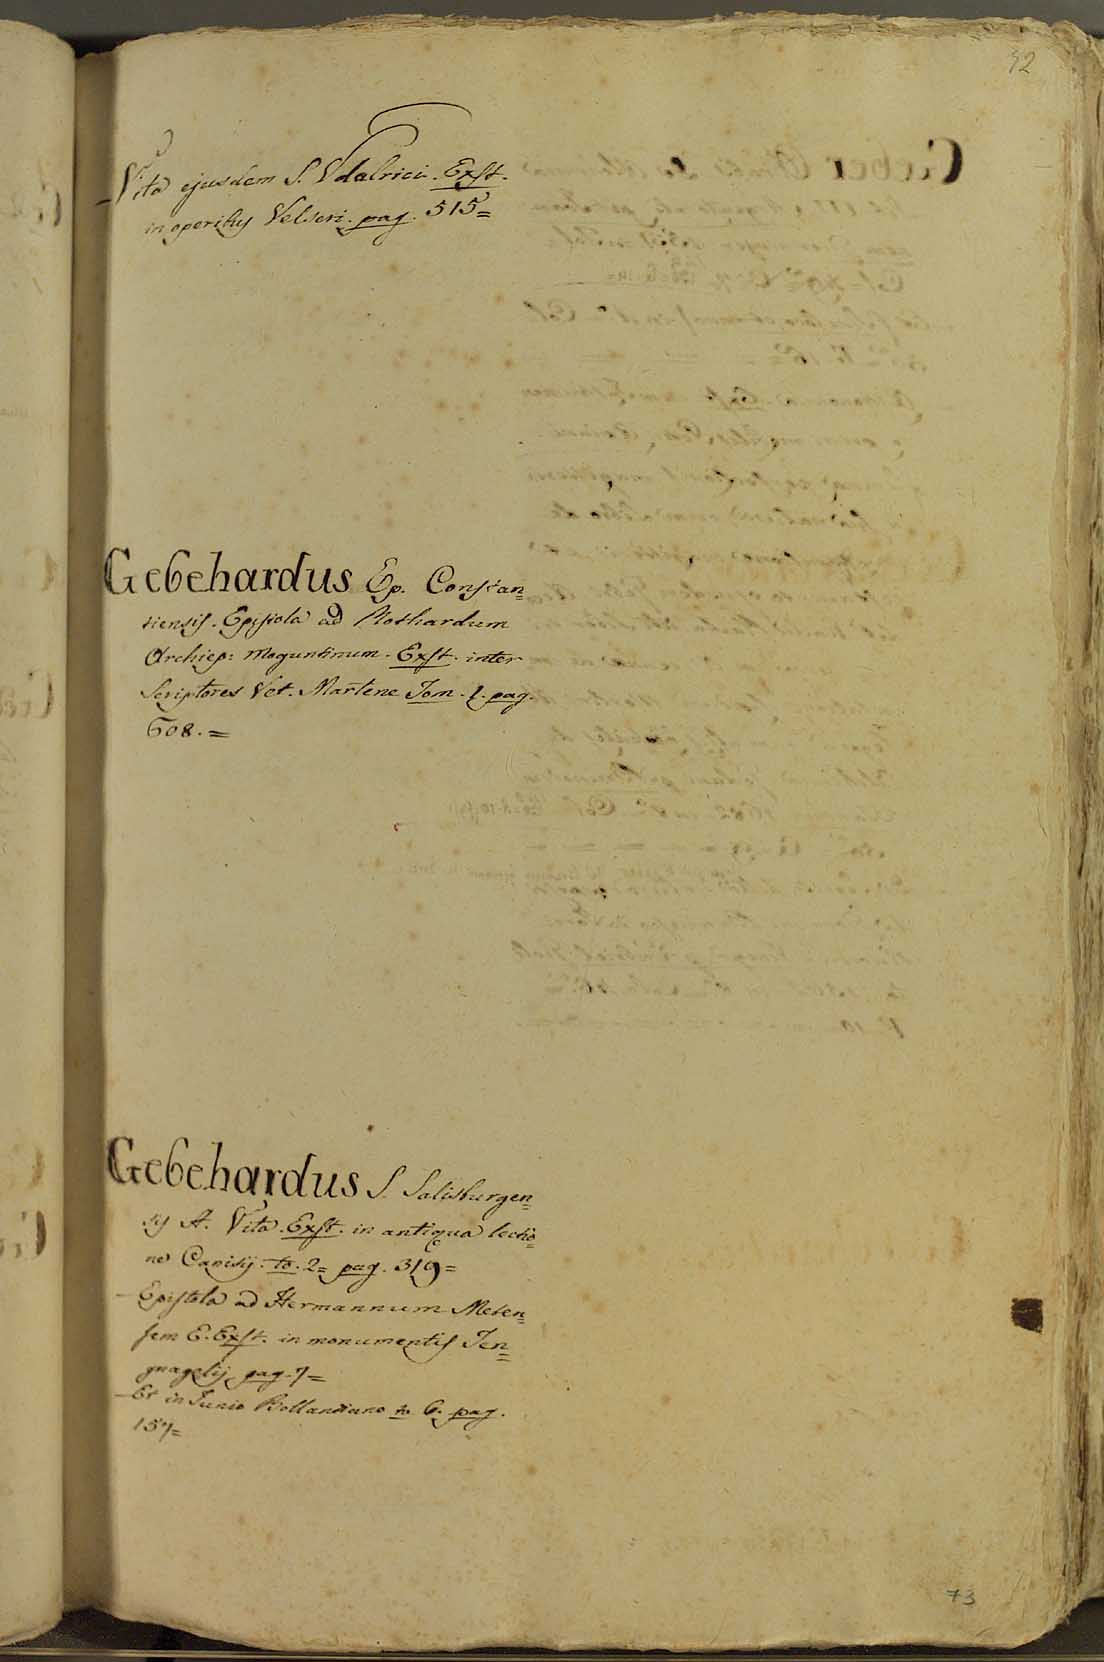 52
– Vita ejusdem S. Vdalrici. Exst.
in operibus Velseri. pag. 515=
Gebehardus Ep. Constan=
tiensis. Epistola ad Rothardum
Archiep: Moguntinum. Exst. inter
Scriptores Vet. Martene Tom. 1. pag.
608. =
Gebehardus S. Salisburgen=
sis A. Vita. Exst. in antiqua lectio=
ne Canisij. to. 2= pag. 319=
– Epistola ad Hermannum Meten=
sem E. Exst. in monumentis Ten=
gnagelij pag. 7=
– Et in Junio Bollandiano to 6. pag.
157=
73